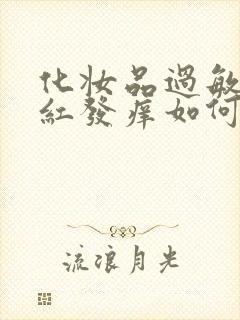 化妆品过敏
红發痒如何
流浪月光